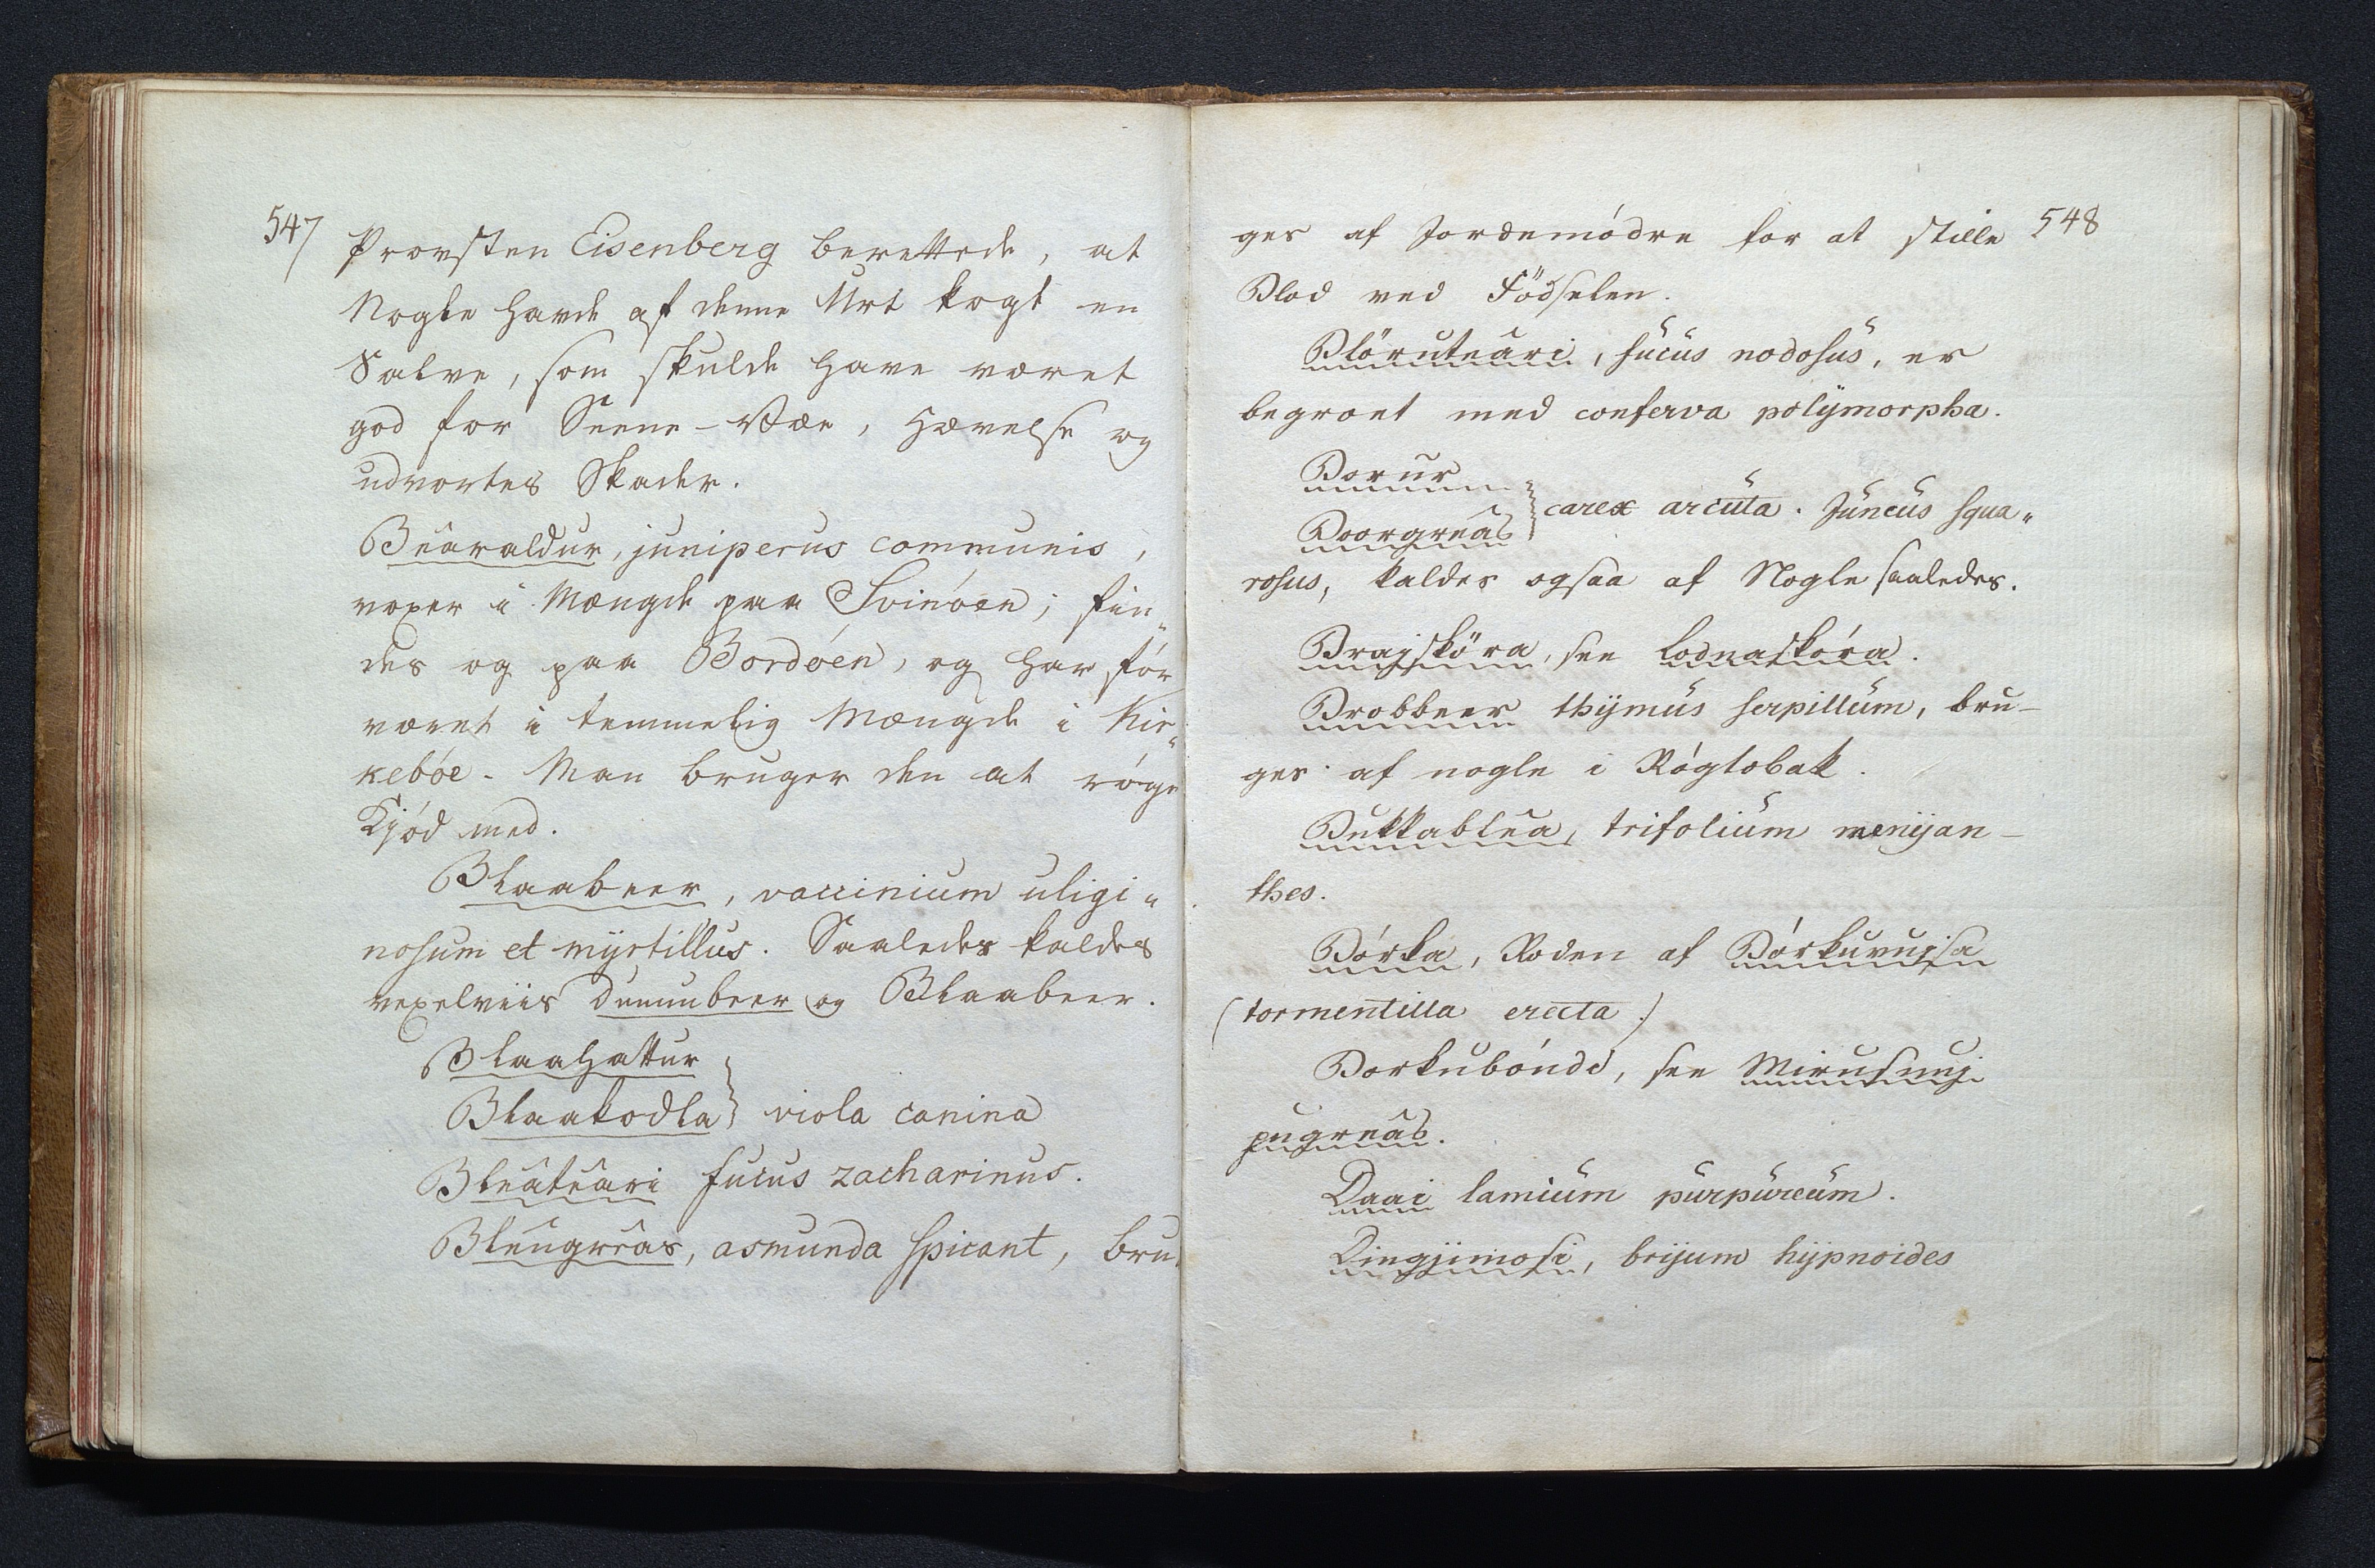 547
Provsten Eisenberg berettede, at
Nogle havde af denne Urt kogt en
Salve, som skulde have været
god for Seene-Vee, Hævelse og
udvortes Skader.
Bearaldur, juniperus communis,
voxer i Mængde paa Svinóen; fin„
des og paa Bordóen, og har för
været i temmelig Mængde i Kir„
kebóe. Man bruger den at róge
Kjód med.
Blaabeer, vaccinium uligi„
nosum et myrtillus. Saaledes kaldes
vexelviis Duunubeer og Blaabeer.
Blaahattur
Blaakodla } viola canina
Bleáteári fucus zacharinus.
Bleügreâs, asmunda spicant, bru„
548
ges af Jordemódre for at stille
Blod ved Födselen.
Blöruteâri, fucus nodosus, er
begroet med conferva polÿmorpha.
Borur
Boorgreâs } carex arcuta. Juncus squa„
rosus, kaldes ogsaa af Nogle saaledes.
Brajsköra, see Lodnaskóra.
Brobbeer thÿmus serpillum, bru-
ges af nogle i Rógtobak.
Bukkablea, trifolium menÿan-
thes.
Bórka, Roden af Bórkuvujsa
(tormentilla erecta.)
Borkubóndi, see Mirusuuj-
pugreâs.
Daai lamium purpureum.
Dingjimosi, brÿum hÿpnoides